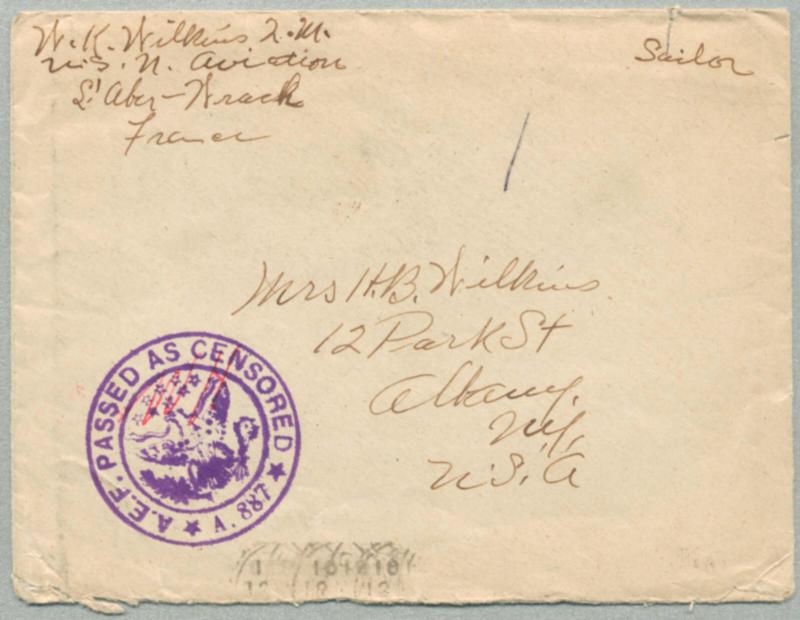 W. K. Wilkins Q.M.
U.S. N. Aviation
L'Aber-Wrach
France
Sailor
Mrs H.B. Wilkins
12 Park St
Albany,
N.Y.
U.S.A
A.E.F. PASSED AS CENSORED
A. 887